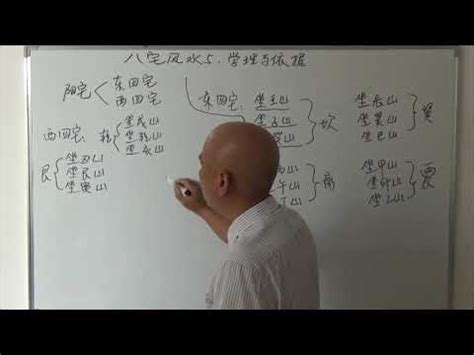 八宅风水5.学理与依据
阳宅
东四宅
西四宅
东四宅:
坐壬山
坐子山
山
坎
坐辰山
坐巽山
坐巳山
巽
西四宅:
乾
坐戌山
坐乾山
坐亥山
艮
坐丑山
坐艮山
坐寅山
山
午山
山
离
坐甲山
坐卯山
坐乙山
震